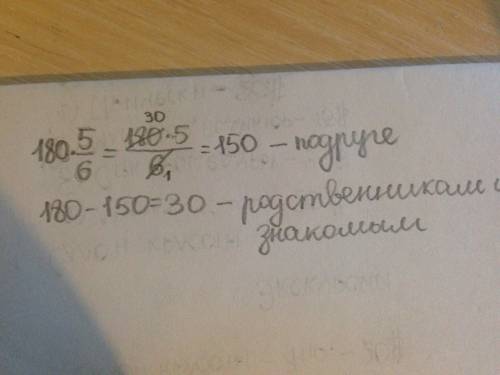 180·5/6 = 180·5/6 = 150 – подруге
30
1
180-150=30 – родственникам и
знакомым